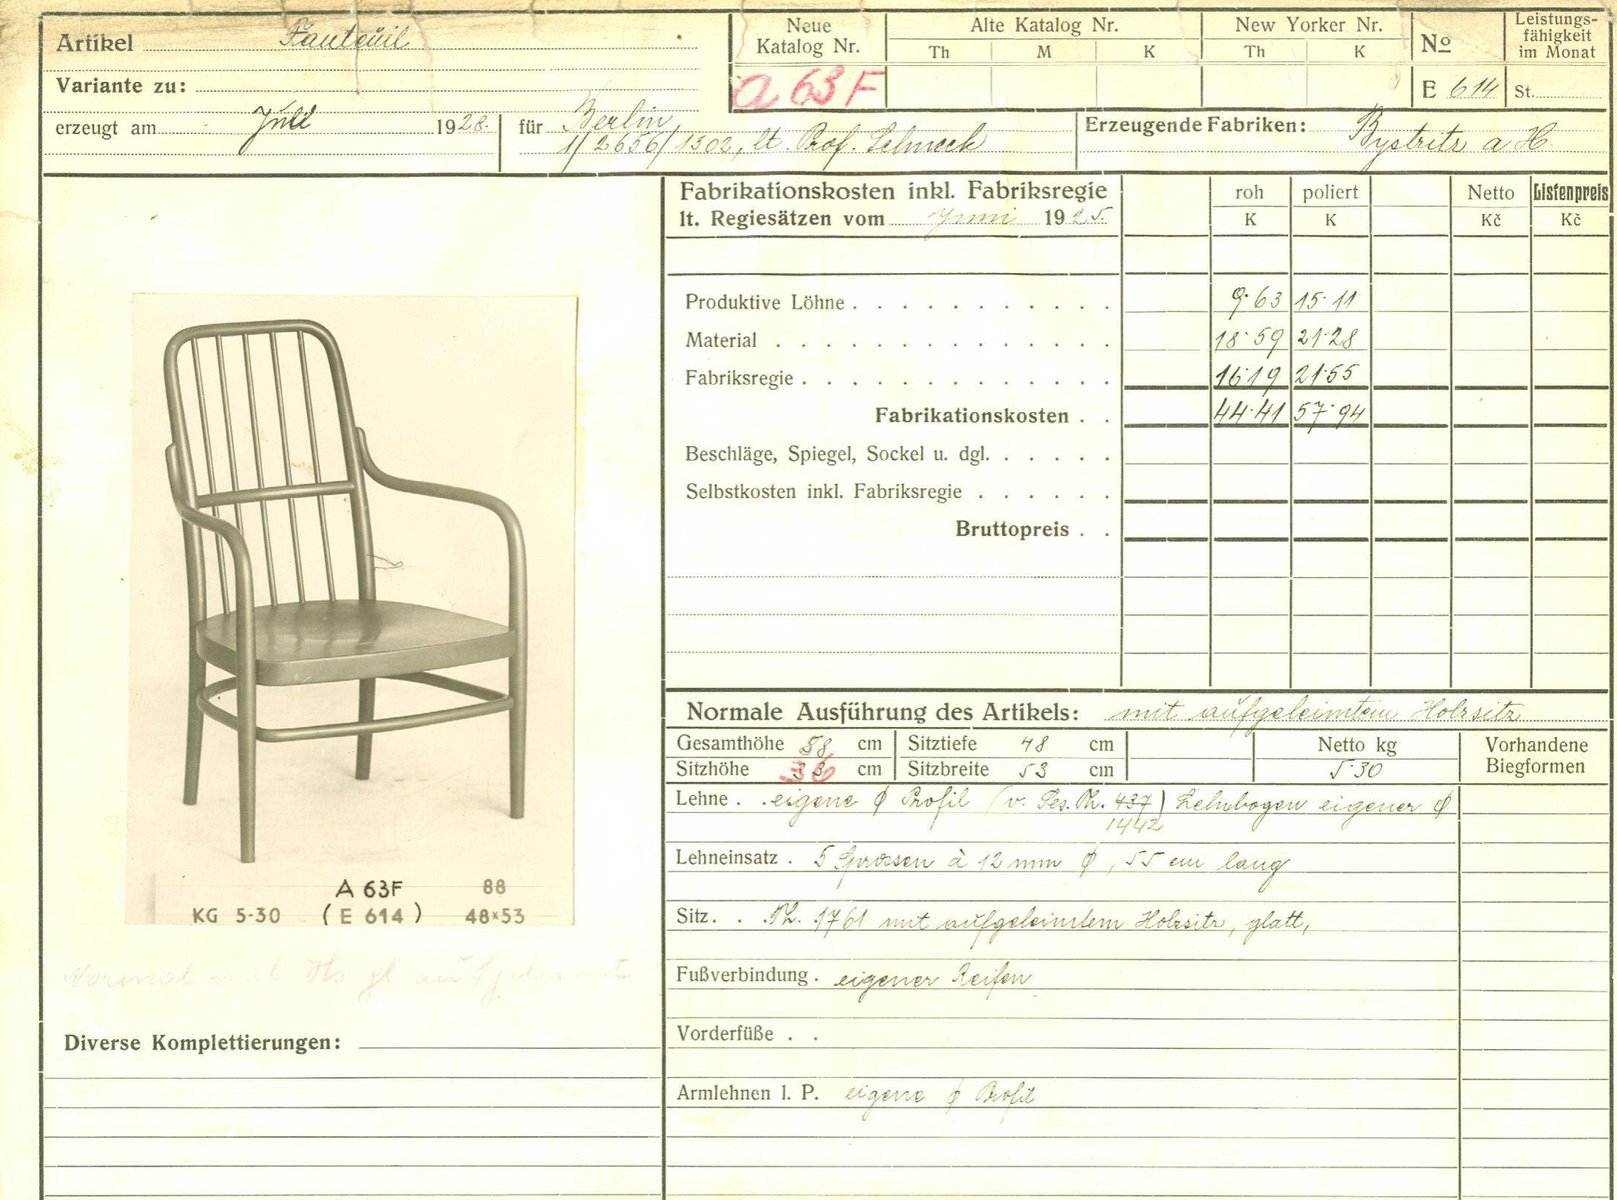 Artikel Fauteuil
Variante zu:
erzeugt am Juli 1928. für Berlin
1/2656/1302, lt. Prof. Schneck
Neue Katalog Nr.
a 63 F
Alte Katalog Nr.
Th M K
New Yorker Nr.
Th K
No
E 614
Leistungs-
fähigkeit
im Monat
St.
Erzeugende Fabriken: Bystritz a H
Fabrikationskosten inkl. Fabriksregie
lt. Regiesätzen vom Juni 1925.
roh poliert Netto Listenpreis
K K Kč Kč
Produktive Löhne 9·63 15·11
Material 18·59 21·28
Fabriksregie 16·19 21·55
Fabrikationskosten 44·41 57·94
Beschläge, Spiegel, Sockel u. dgl.
Selbstkosten inkl. Fabriksregie
Bruttopreis
A 63F 88
KG 5-30 (E 614) 48×53
Normal mit Hs gl aufgeleimt
Diverse Komplettierungen:
Normale Ausführung des Artikels: mit aufgeleimtem Holzsitz
Gesamthöhe 88 cm Sitztiefe 48 cm Netto kg Vorhandene
Sitzhöhe 36 cm Sitzbreite 53 cm 5·30 Biegformen
Lehne . . eigene ø Profil (v. Ses. Th. 437) Lehnbogen eigener ø
1442
Lehneinsatz . 5 Sprossen à 12 mm ø, 55 cm lang
Sitz. . . Th. 1761 mit aufgeleimtem Holzsitz, glatt,
Fußverbindung . eigener Reifen
Vorderfüße . .
Armlehnen l. P. eigene ø Profil